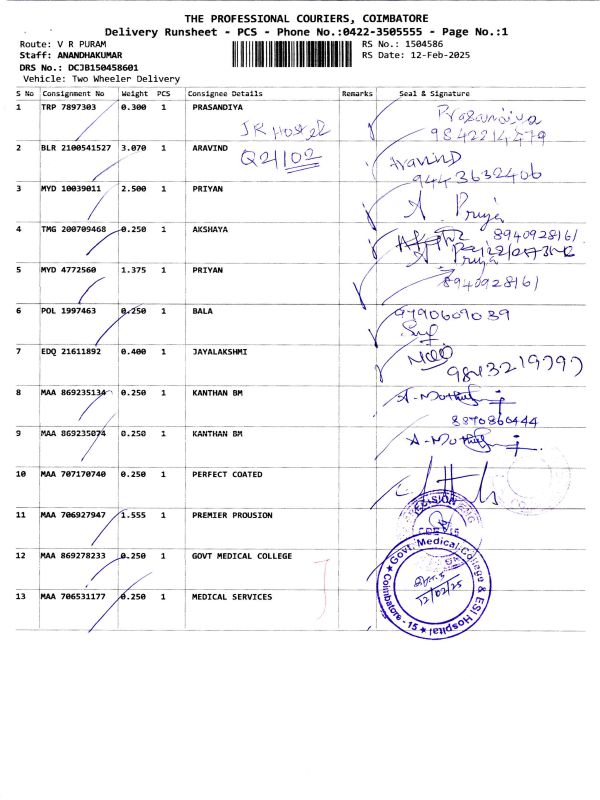 THE PROFESSIONAL COURIERS, COIMBATORE
Delivery Runsheet - PCS - Phone No.:0422-3505555 - Page No.:1
Route: V R PURAM RS No.: 1504586
Staff: ANANDHAKUMAR RS Date: 12-Feb-2025
DRS No.: DCJB150458601
Vehicle: Two Wheeler Delivery
S No Consignment No Weight PCS Consignee Details Remarks Seal & Signature
1 TRP 7897303 0.300 1 PRASANDIYA Prasandiya
JR Hostel 9842214479
2 BLR 2100541527 3.070 1 ARAVIND Aravind
Q21/102 9443632406
3 MYD 10039011 2.500 1 PRIYAN A. Priya
4 TMG 200709468 0.250 1 AKSHAYA 8940928161
5 MYD 4772560 1.375 1 PRIYAN Priya
8940928161
6 POL 1997463 0.250 1 BALA 9790609039
7 EDQ 21611892 0.400 1 JAYALAKSHMI
8 MAA 869235134 0.250 1 KANTHAN BM
8870860444
9 MAA 869235074 0.250 1 KANTHAN BM
10 MAA 707170740 0.250 1 PERFECT COATED
11 MAA 706927947 1.555 1 PREMIER PROUSION
12 MAA 869278233 0.250 1 GOVT MEDICAL COLLEGE
13 MAA 706531177 0.250 1 MEDICAL SERVICES
Govt. Medical College & ESI Hospital
Coimbatore - 15
12/02/25